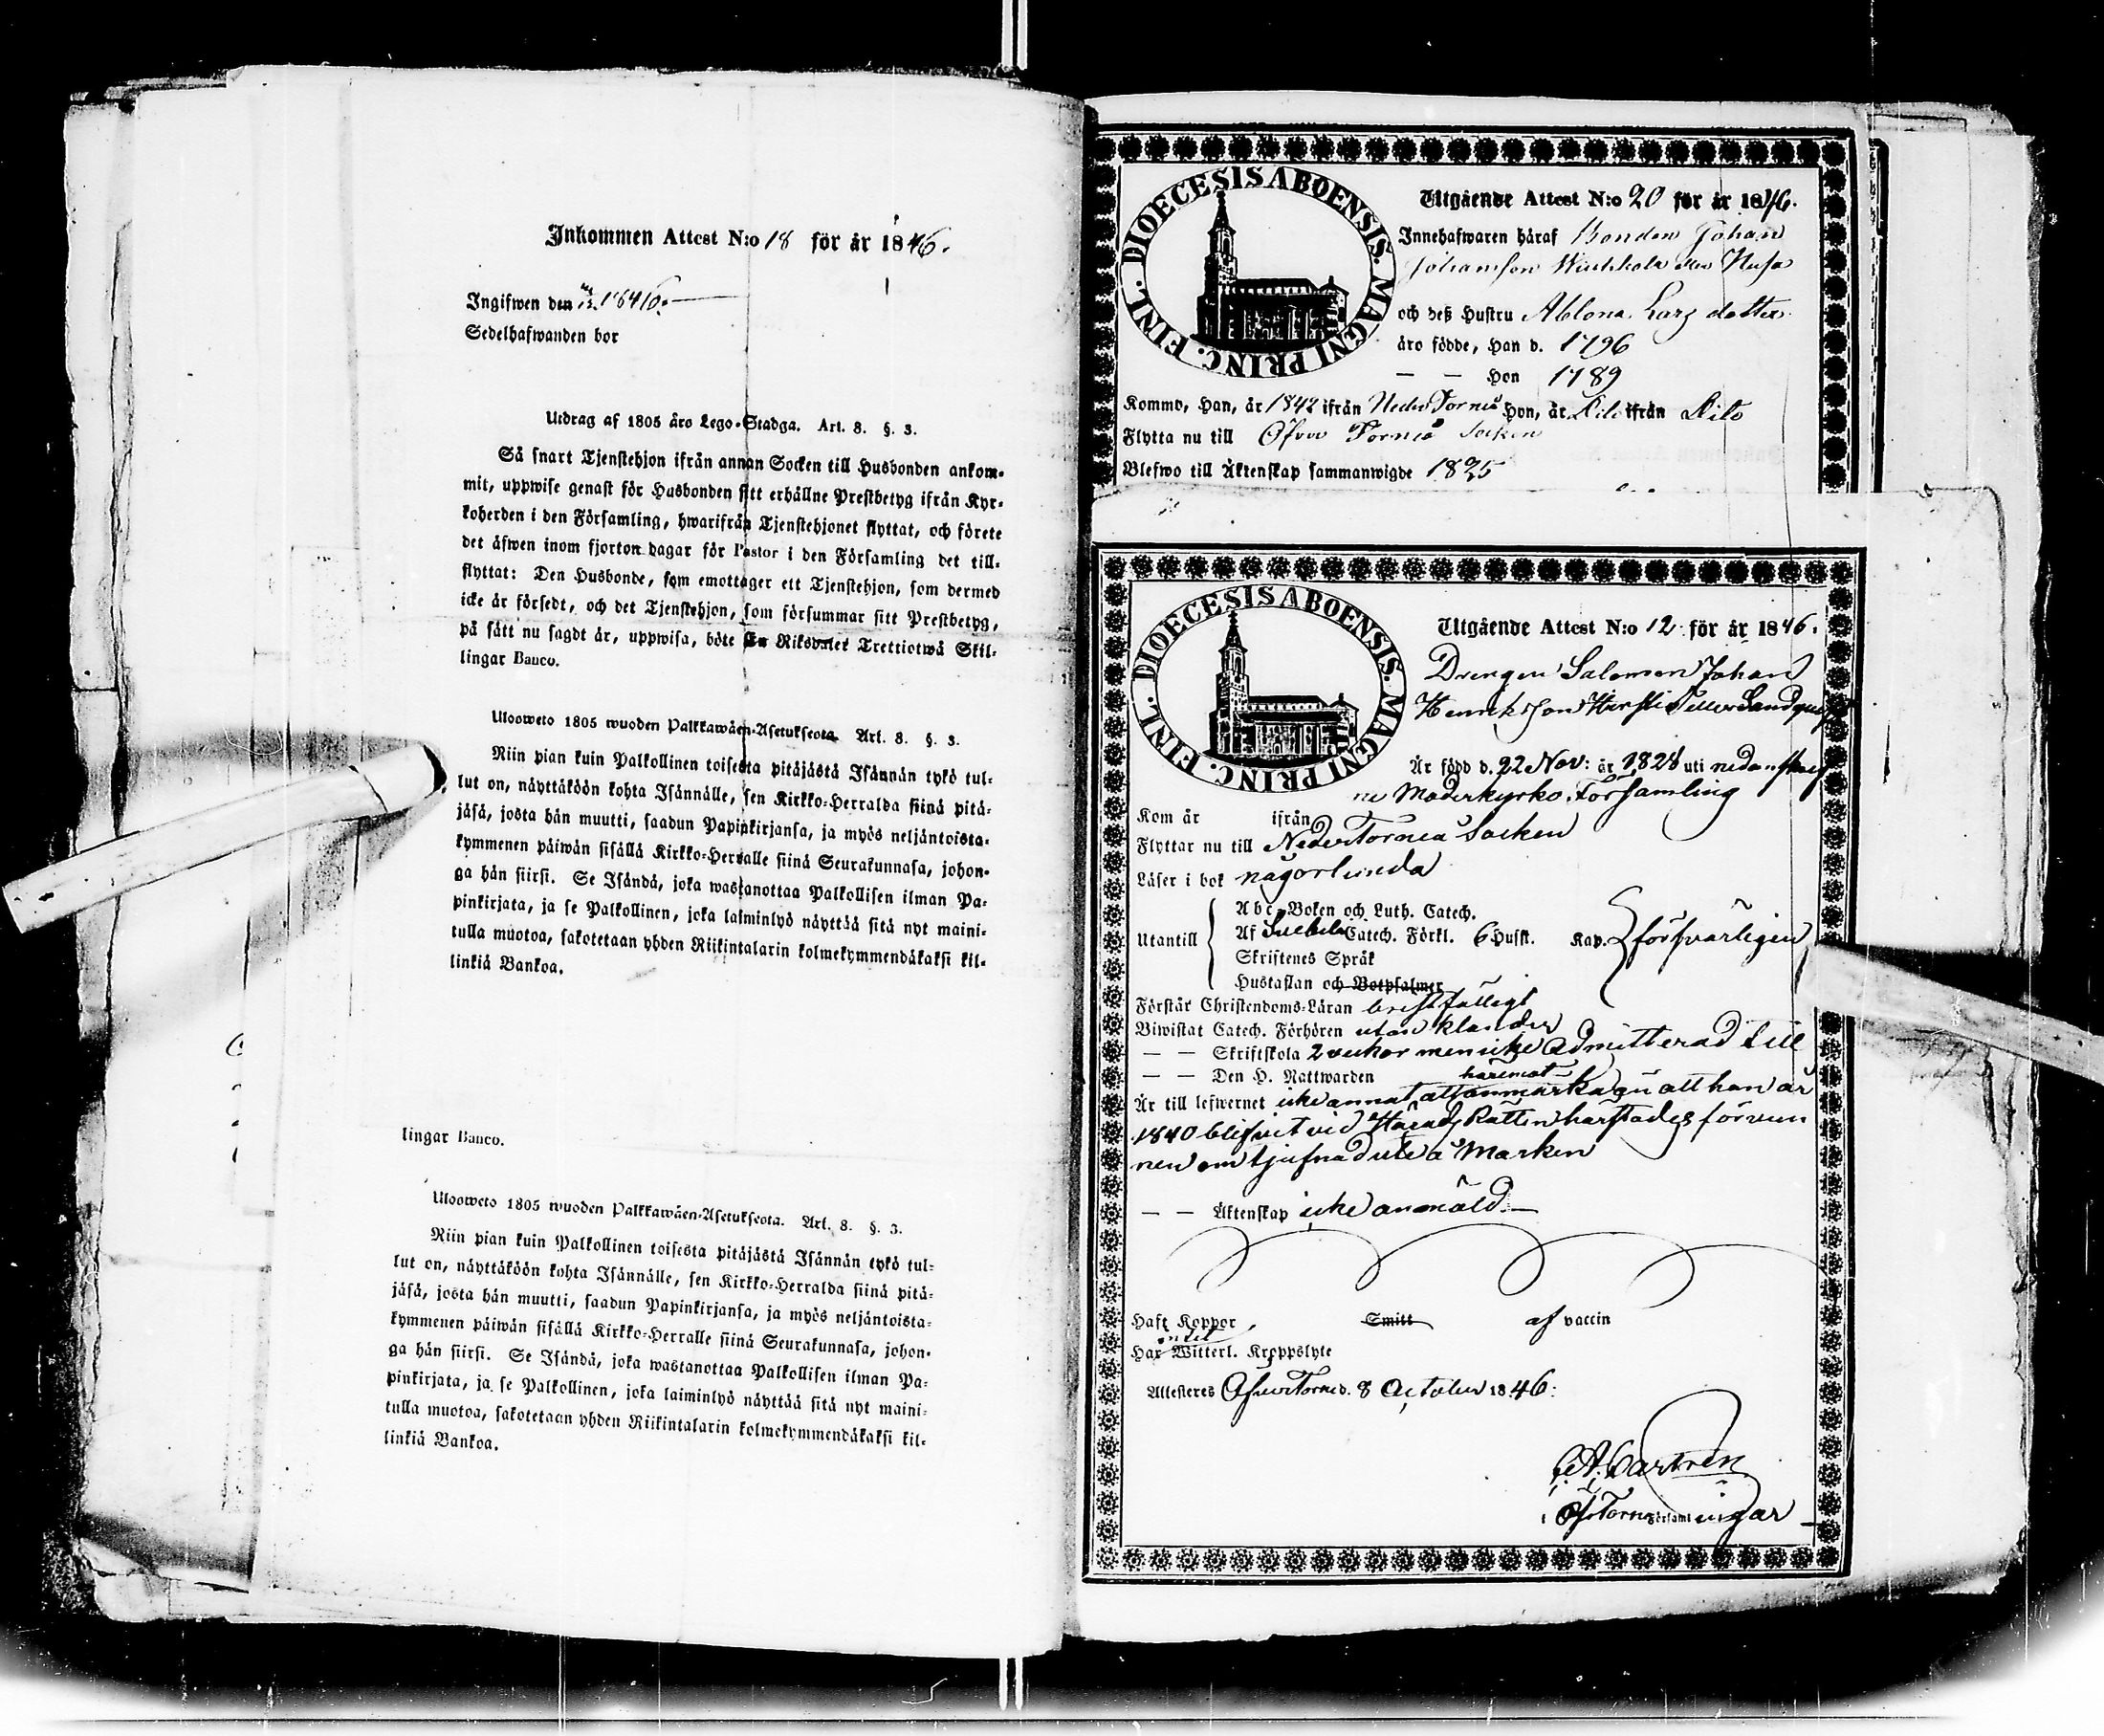 Inkommen Attest N:o 18 för år 1846.
Ingifwen den 1846.
Sedelhafwanden bor
Utdrag af 1805 års Lego-Stadga. Art. 8. §. 3.
Så snart Tjenstehjon ifrån annan Socken till Husbonden ankom-
mit, uppwise genast för Husbonden sitt erhållne Prestbetyg ifrån Kyr-
koherden i den Församling, hwarifrån Tjenstehjonet flyttat, och förete
det äfwen inom fjorton dagar för Pastor i den Församling det till-
flyttat: Den Husbonde, som emottager ett Tjenstehjon, som dermed
icke är försedt, och det Tjenstehjon, som försummar sitt Prestbetyg,
på sätt nu sagdt är, uppwisa, böte En Riksdaler Trettiotwå Skil-
lingar Banco.
Ulosweto 1805 wuoden Palkkawäen-Asetuksesta. Art. 8. §. 3.
Niin pian kuin Palkollinen toisesta pitäjästä Isännän tykö tul-
lut on, näyttäköön kohta Isännälle, sen Kirkko-Herralda siinä pitä-
jäsä, josta hän muutti, saadun Papinkirjansa, ja myös neljäntoista-
kymmenen päiwän sisällä Kirkko-Herralle siinä Seurakunnasa, johon-
ga hän siirsi. Se Isändä, joka wastanottaa Palkollisen ilman Pa-
pinkirjata, ja se Palkollinen, joka laiminlyö näyttää sitä nyt maini-
tulla muotoa, sakotetaan yhden Riikintalarin kolmekymmendäkaksi kil-
linkiä Bankoa.
lingar Banco.
Ulosweto 1805 wuoden Palkkawäen-Asetuksesta. Art. 8. §. 3.
Niin pian kuin Palkollinen toisesta pitäjästä Isännän tykö tul-
lut on, näyttäköön kohta Isännälle, sen Kirkko-Herralda siinä pitä-
jäsä, josta hän muutti, saadun Papinkirjansa, ja myös neljäntoista-
kymmenen päiwän sisällä Kirkko-Herralle siinä Seurakunnasa, johon-
ga hän siirsi. Se Isändä, joka wastanottaa Palkollisen ilman Pa-
pinkirjata, ja se Palkollinen, joka laiminlyö näyttää sitä nyt maini-
tulla muotoa, sakotetaan yhden Riikintalarin kolmekymmendäkaksi kil-
linkiä Bankoa.
DIOECESIS ABOENSIS. MAGNI PRINC. FINL.
Utgående Attest N:o 20 för år 1846.
Innehafwaren häraf Bonden Johan
Johansson
och deß Hustru Ablona Lars dotter
äro födde, Han d. 1796
— — Hon 1789
Kommo, Han, år 1842 ifrån Neder Torneå Hon, år Dito ifrån Dito
Flytta nu till Öfver Torneå Socken
Blefwo till Äktenskap sammanwigde 1825
DIOECESIS ABOENSIS. MAGNI PRINC. FINL.
Utgående Attest N:o 12 för år 1846.
Drengen Salomon Johan
Henriksson eller
Är född d. 22 Nov: år 1828 uti nedanskref
ne Moderkyrko Församling
Kom år ifrån
Flyttar nu till Neder Torneå Socken
Läser i bok någorlunda
Utantill
Abc-Boken och Luth. Catech.
Af Svebelii Catech. Förkl. 6 Hufst. Kap. försvarligen
Skriftenes Språk
Hustaflan och Botpsalmer
Förstår Christendoms-Läran bristfälligt
Biwistat Catech. Förhören utan klander
— — Skriftskola 2 veckor men icke admitterad till
— — Den H. Nattwarden
häremot
Är till lefwernet icke annat att anmärka än att han är
1840 blifvit vid Härads Rätten härstädes förvun
nen om tjufnad ute å Marken
— — Äktenskap icke anmäld. —
Haft Koppor Smitt af vaccin
Har intet Witterl. Kroppslyte
Attesteres Öfver Torneå d. 8 October 1846:
C. A. Castrén
i Öf. Torneå Församlingar